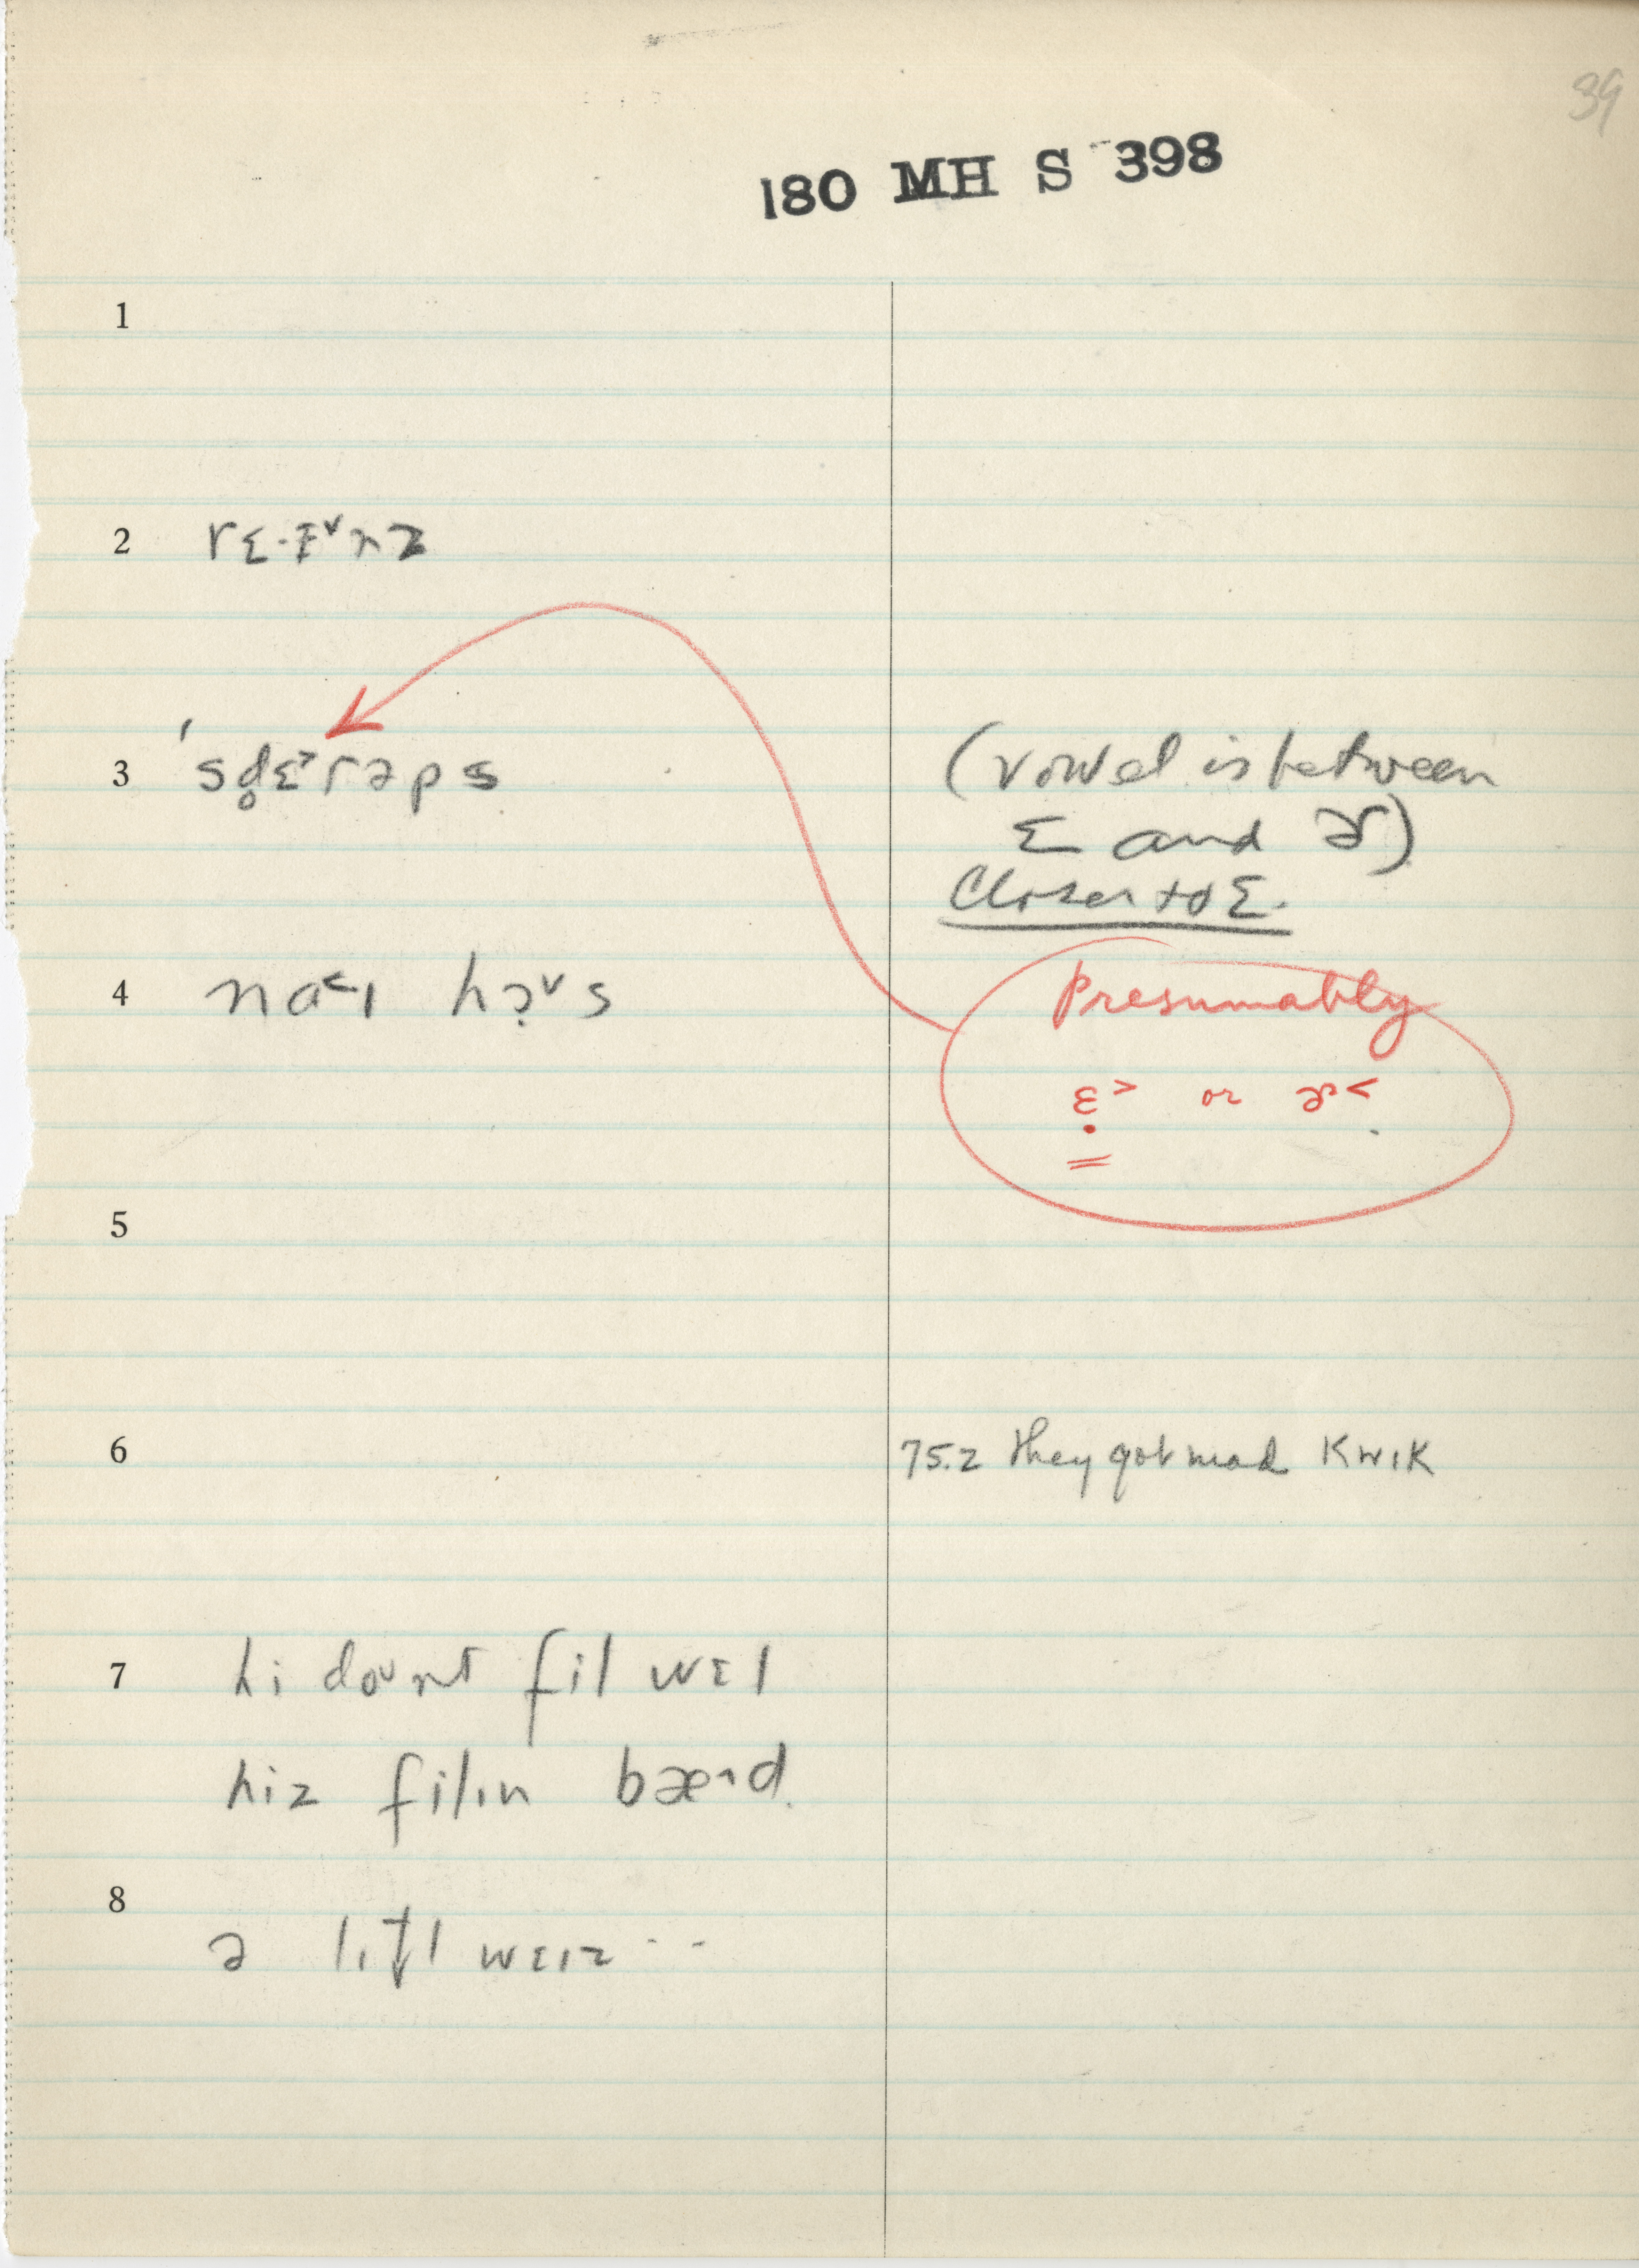 39
180 MH S 398
1
2 rɛ·ɨ˅nz
3 'sd̥ɛ˃rəps (vowel is between
ɛ and ɚ)
Closer to ɛ.
4 na˂ɪ hɔ̣˅s
Presumably
ɛ̣˃ or ɚ˂
5
6 75.2 they got mad KwɪK
7 hi doʊnt fil wɛl
hiz filɪn bæ˄d.
8
ə lɪt̬l weɪz - -